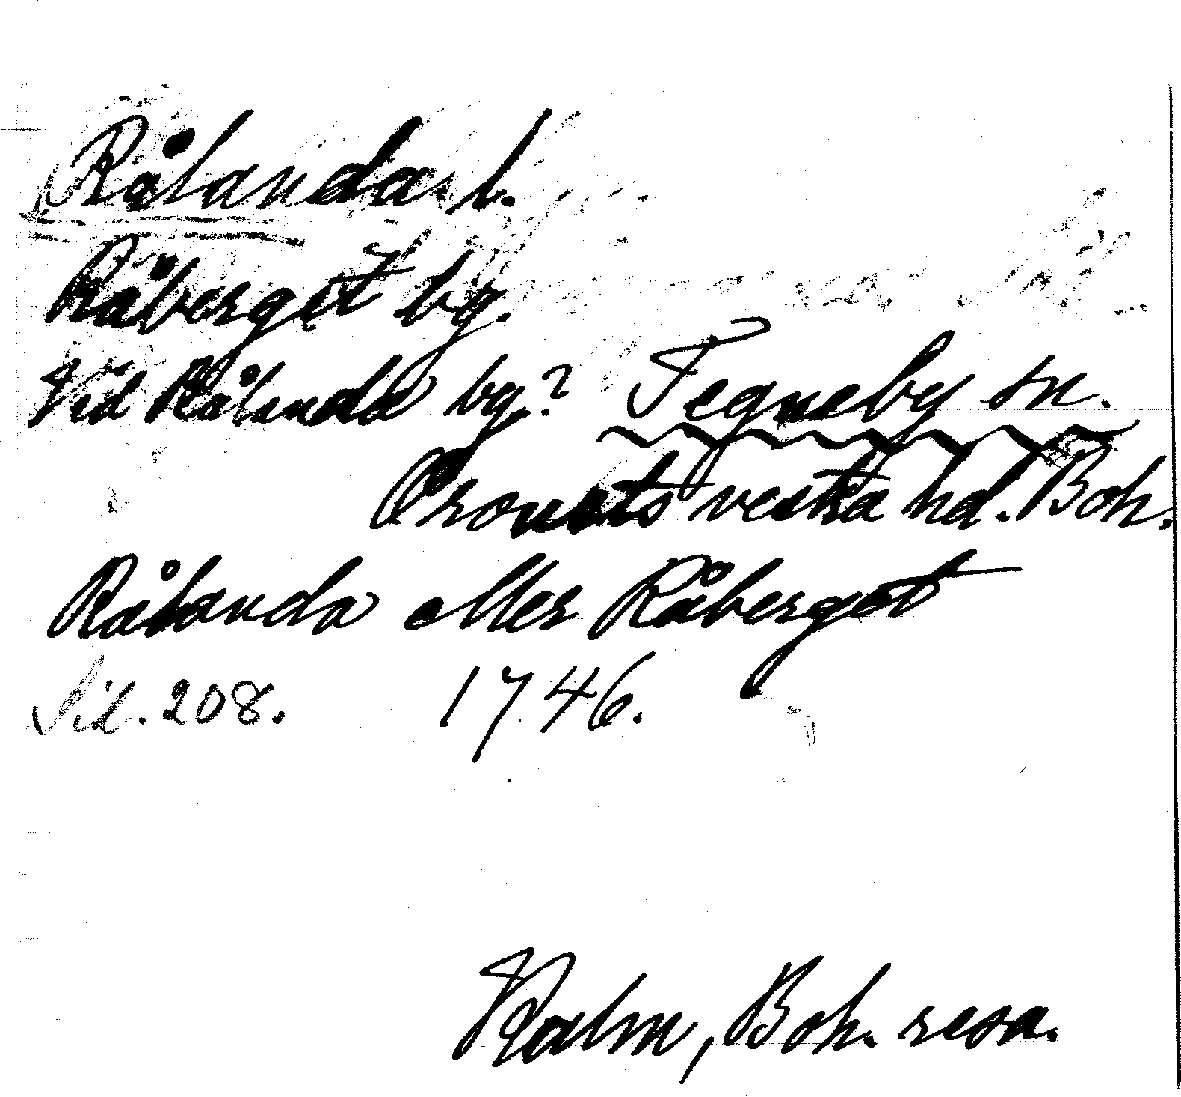 Rålanda l.
Råberget bg.
Vid Rålanda bg.? Tegneby sn.
Orousts vestra hd. Boh.
Rålanda eller Råberget
Sid. 208. 1746.
Kalm, Boh. resa.